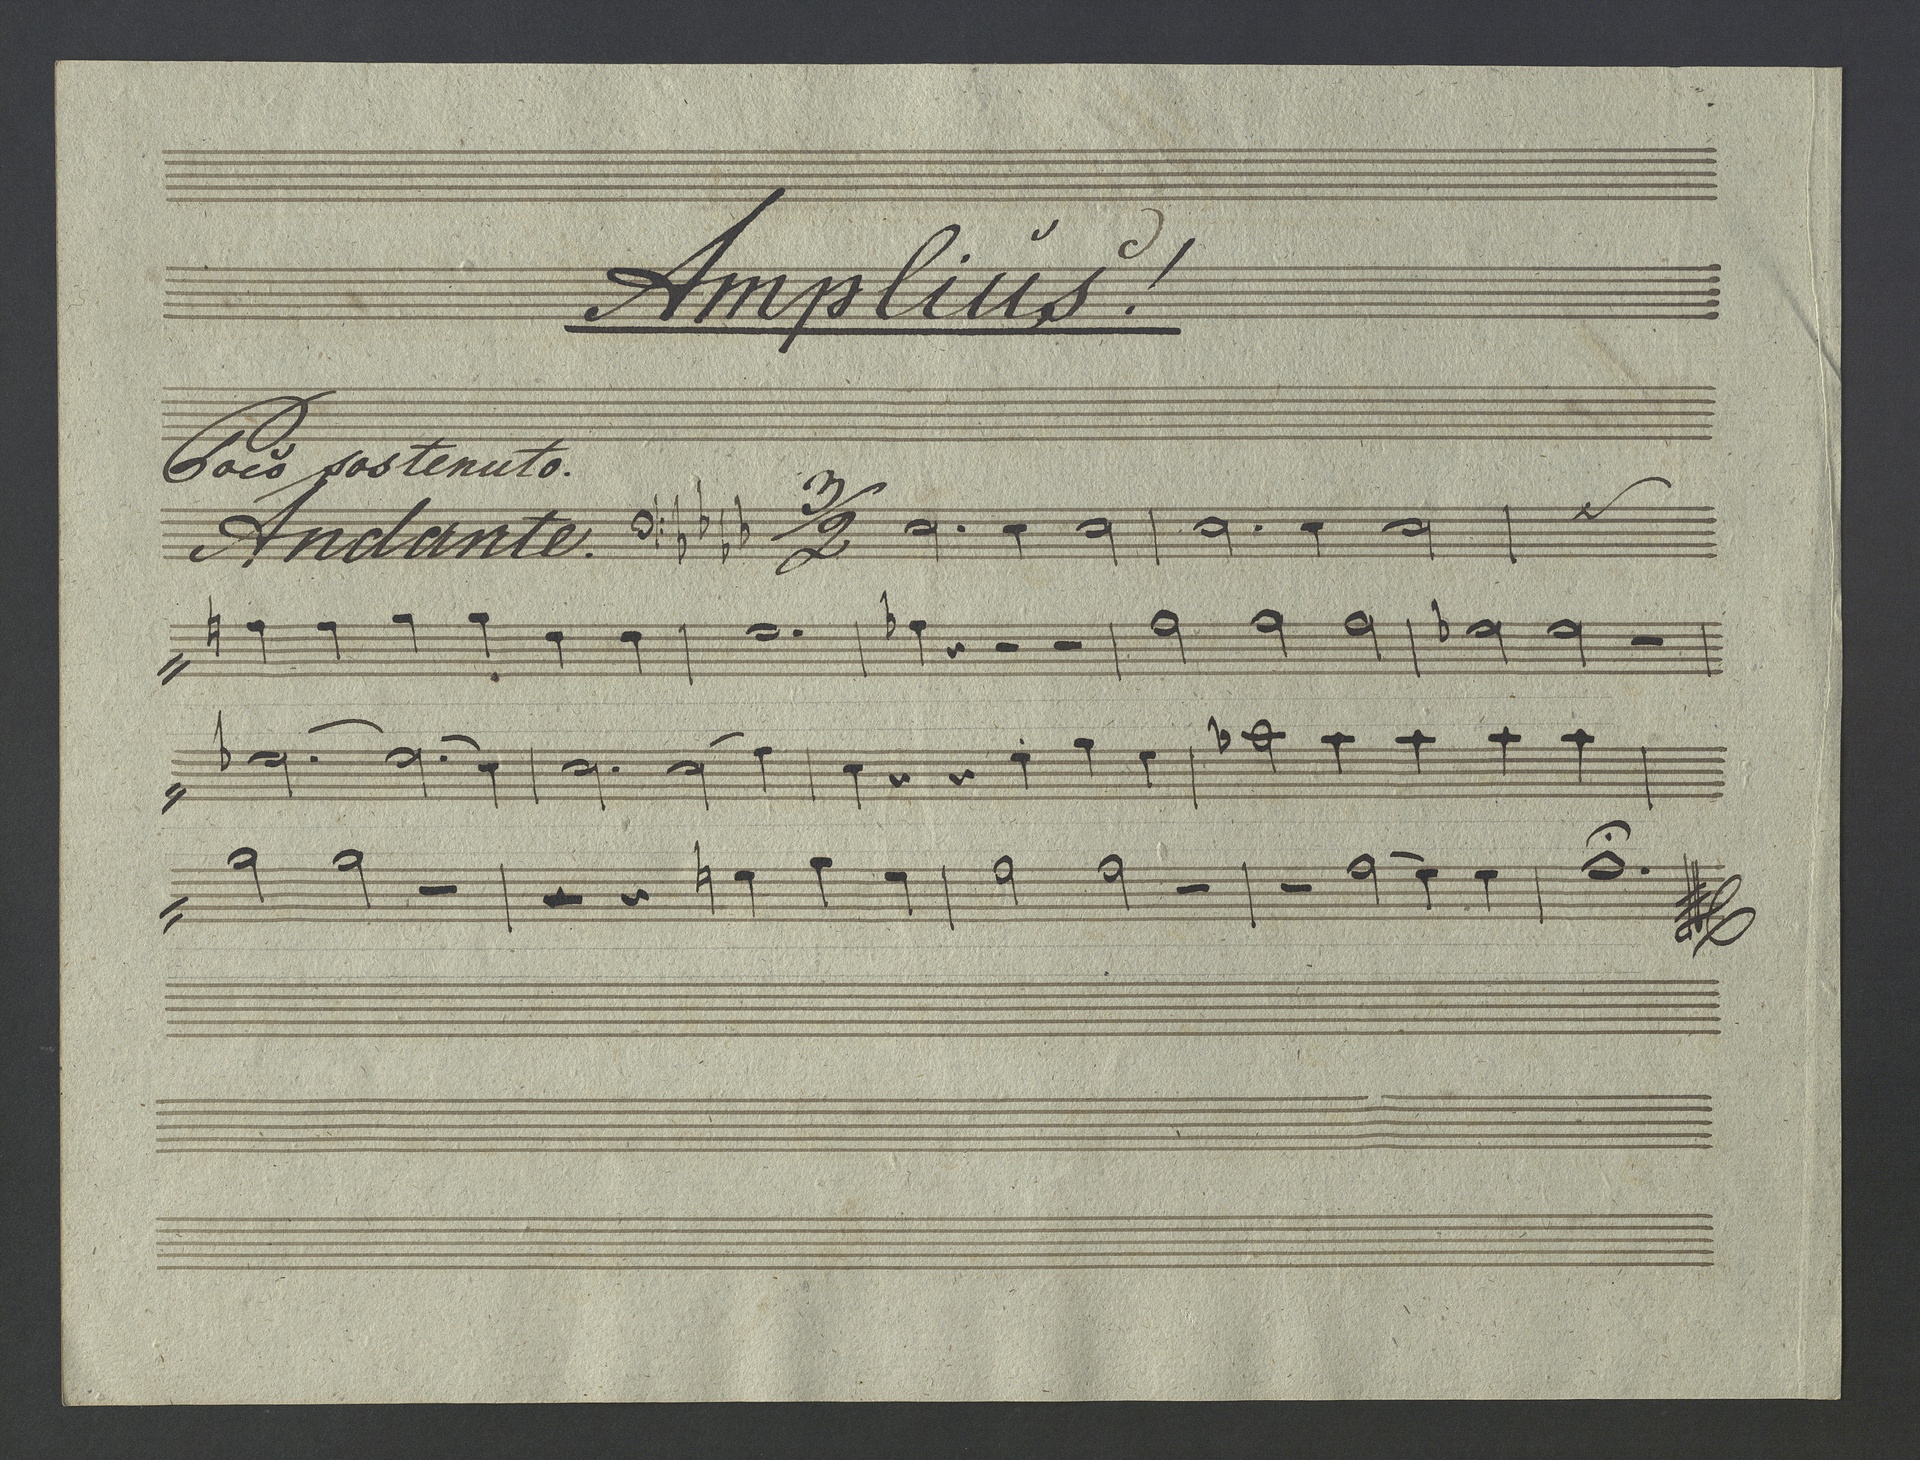 Amplius!
Poco sostenuto.
Andante. 3/2